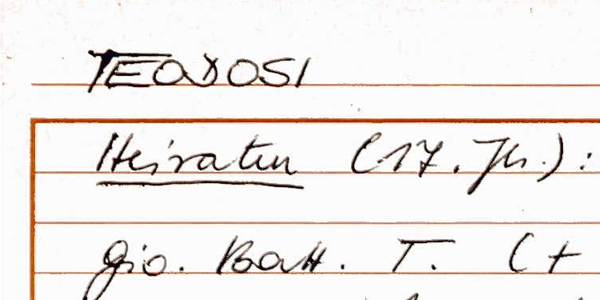 TEODOSI
Heiraten (17. Jh.):
Gio. Batt. T. (+